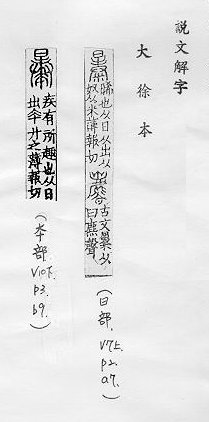 説文解字
大徐本
晞也从日从出从
𠬞从米薄報切 古文㬥从
日麃聲
(日部.
V7上.
p2.
a7.)
疾有所趣也从日
出夲廾之薄報切
(夲部
V10下.
p3.
b9.)